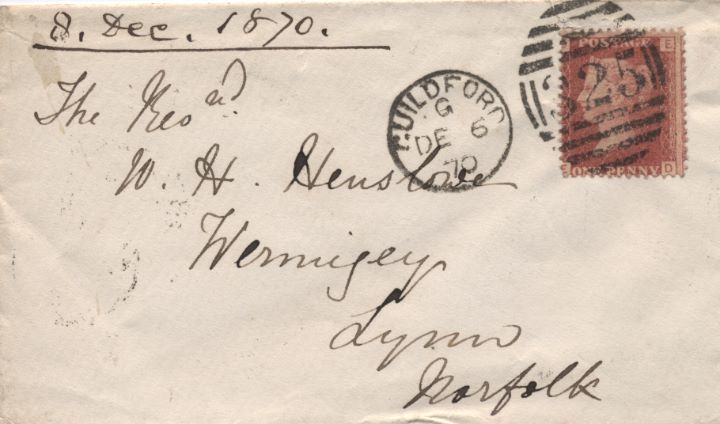 8. Dec. 1870.
The Revd.
W. H. Henslowe
Wormigey
Lynn
Norfolk
GUILDFORD
G
DE 6
70
325
POSTAGE
E
ONE PENNY
D